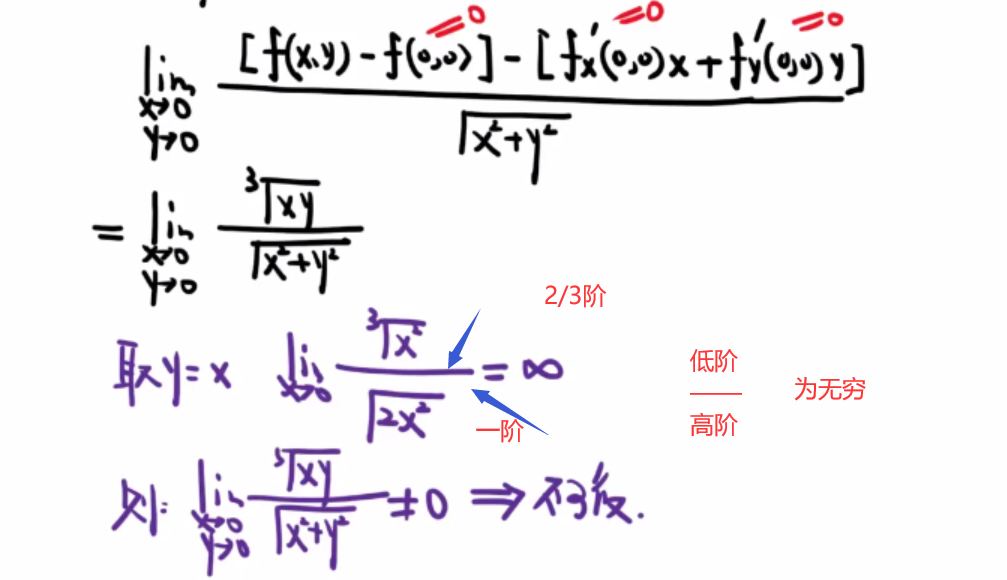 =0 =0 =0
lim x→0 y→0 [f(x,y) - f(0,0)] - [f'x(0,0)x + f'y(0,0)y] / √(x²+y²)
= lim x→0 y→0 ³√(xy) / √(x²+y²)
2/3阶
取y=x lim x→0 ³√(x²) / √(2x²) = ∞
低阶
—— 为无穷
高阶
一阶
则: lim x→0 y→0 ³√(xy) / √(x²+y²) ≠ 0 ⇒ 不可微.